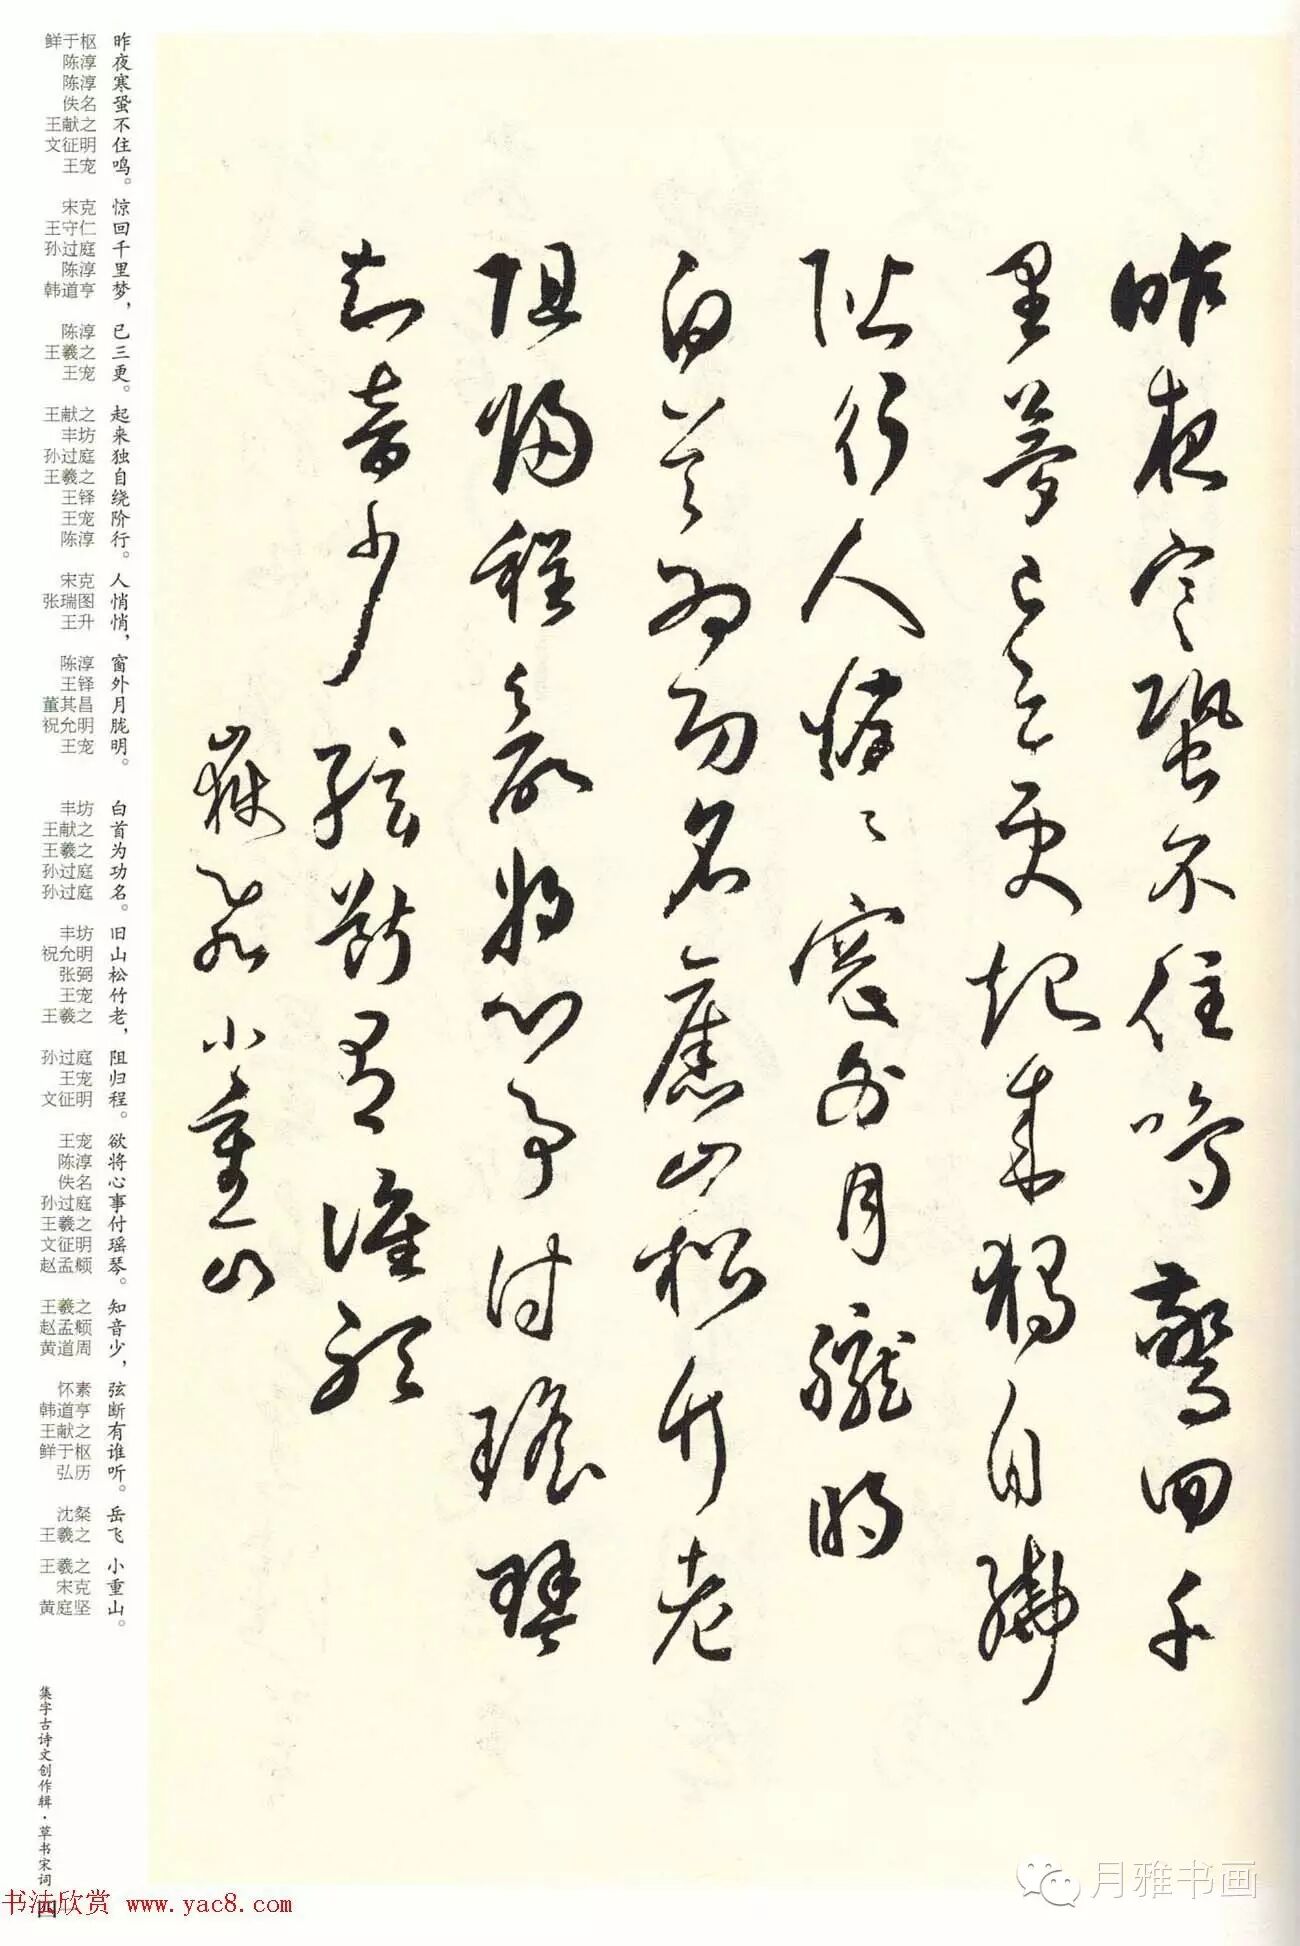 昨夜寒蛩不住鳴驚回千
里夢已三更起來獨自繞
階行人悄々窗外月朧明
白首為功名舊山松竹老
阻歸程欲將心事付瑤琴
知音少絃斷有誰聽
嶽飛小重山
昨夜寒蛩不住鸣。惊回千里梦，已三更。起来独自绕阶行。人悄悄，窗外月胧明。白首为功名。旧山松竹老，阻归程。欲将心事付瑶琴。知音少，弦断有谁听。岳飞 小重山。
鲜于枢
陈淳
陈淳
佚名
王献之
文征明
王宠
宋克
王守仁
孙过庭
陈淳
韩道亨
陈淳
王羲之
王宠
王献之
丰坊
孙过庭
王羲之
王铎
王宠
陈淳
宋克
张瑞图
王升
陈淳
王铎
董其昌
祝允明
王宠
丰坊
王献之
王羲之
孙过庭
孙过庭
丰坊
祝允明
张弼
王宠
王羲之
孙过庭
王宠
文征明
王宠
陈淳
佚名
孙过庭
王羲之
文征明
赵孟頫
王羲之
赵孟頫
黄道周
怀素
韩道亨
王献之
鲜于枢
弘历
沈粲
王羲之
王羲之
宋克
黄庭坚
集字古诗文创作辑·草书宋词
四
书法欣赏 www.yac8.com
月雅书画